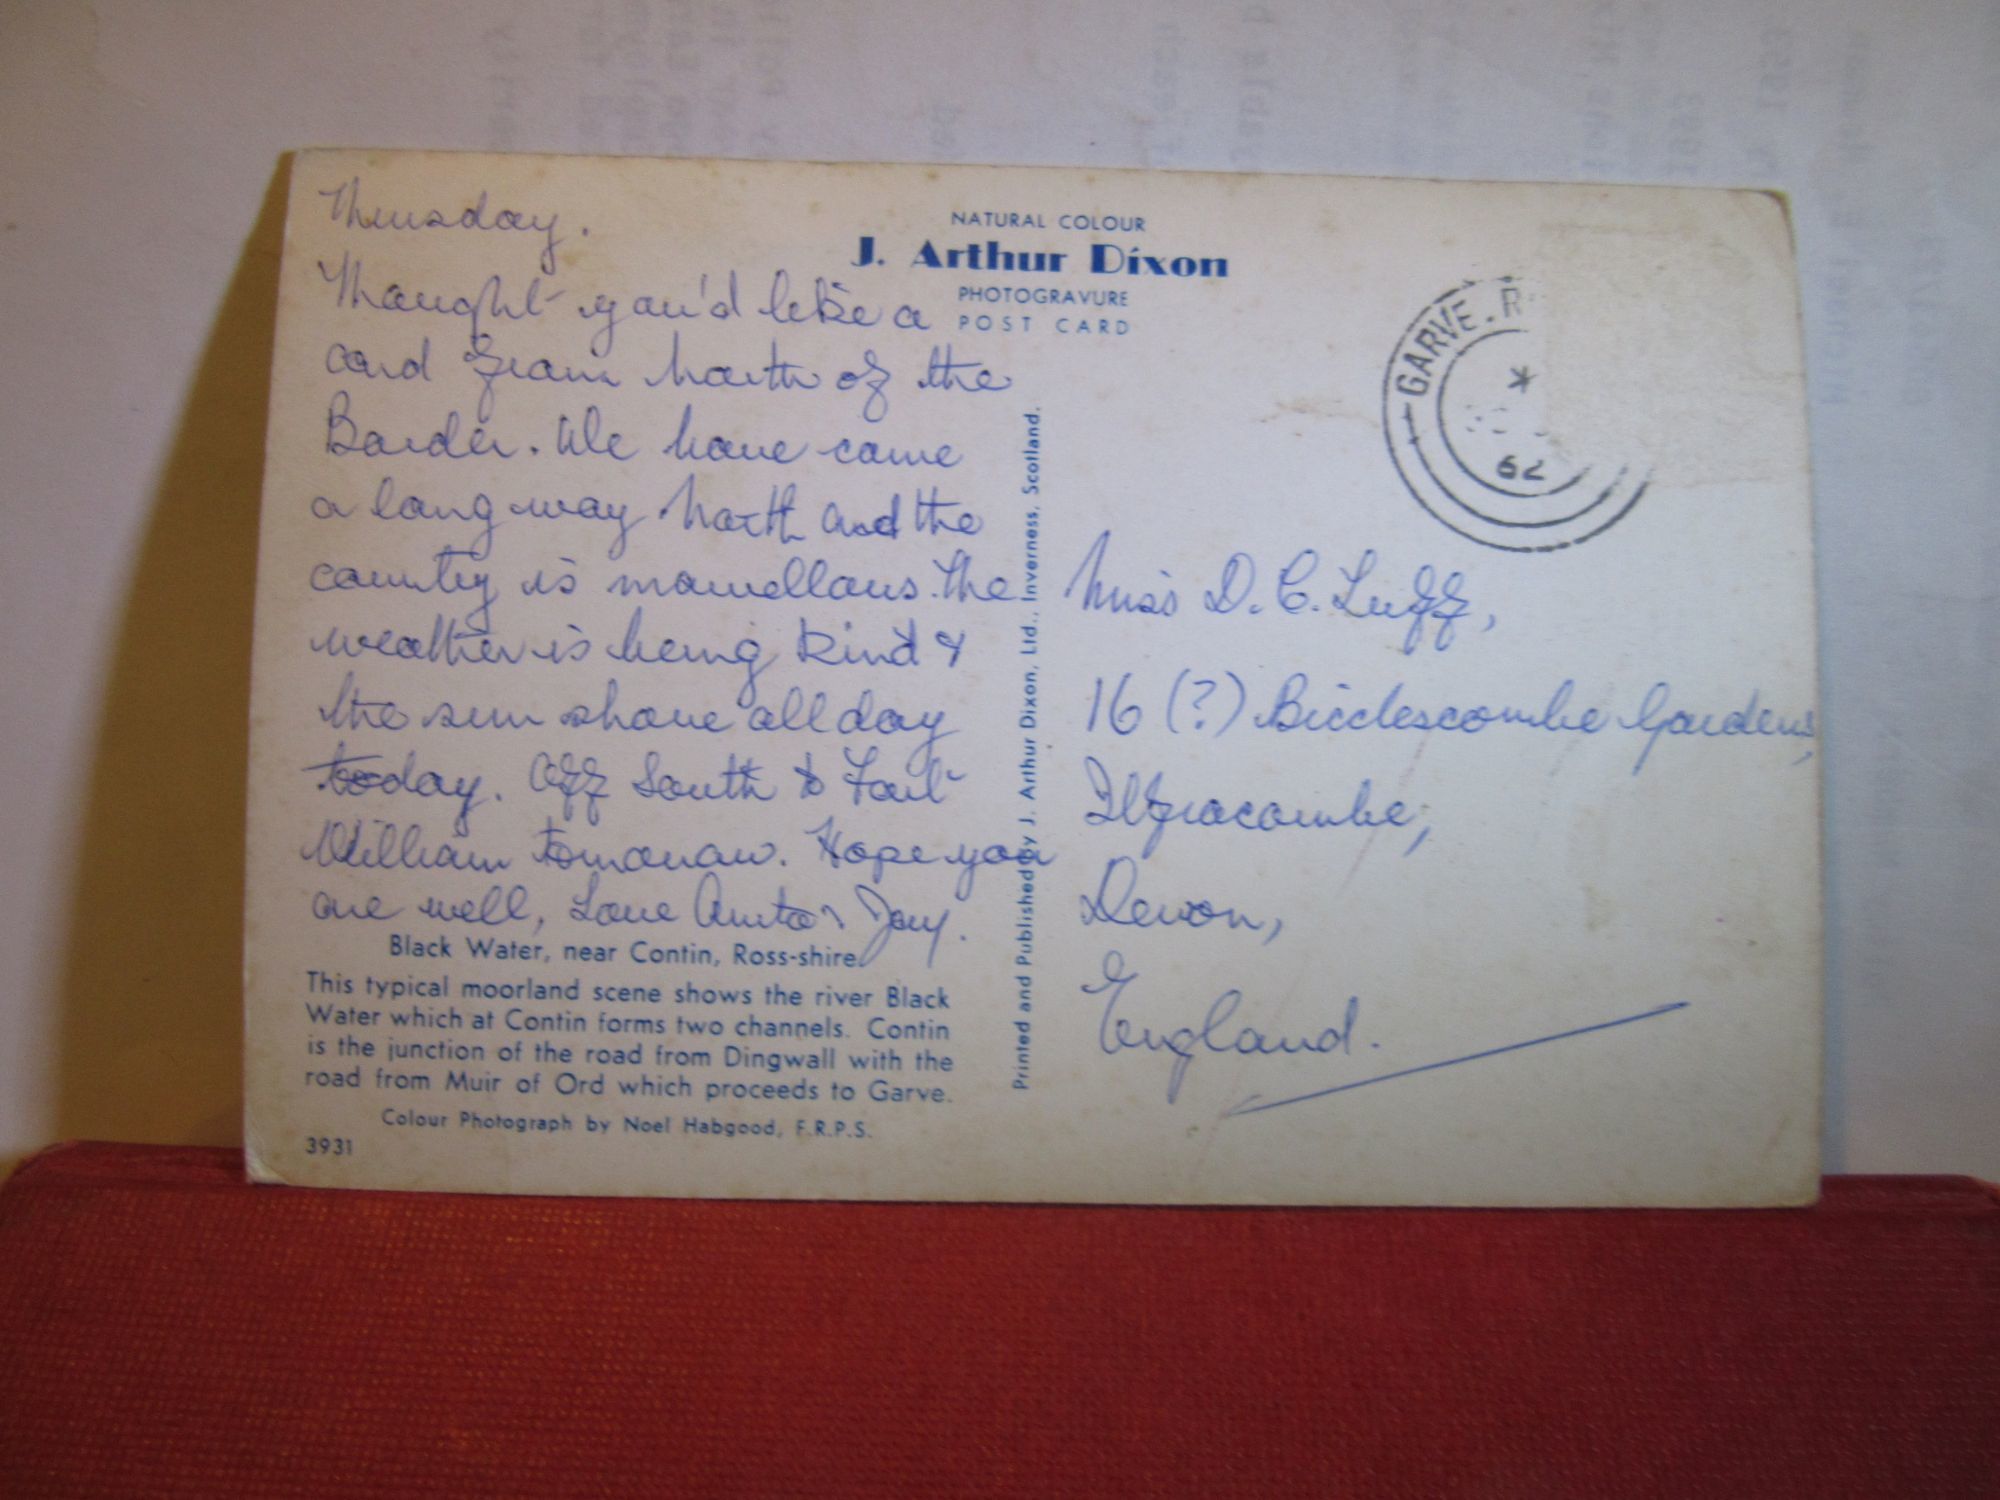 Thursday.
Thought you'd like a
card from North of the
Border. We have come
a long way North and the
country is marvellous. The
weather is being kind &
the sun shone all day
today. Off South to Fort
William tomorrow. Hope you
are well, Love Anita & Jay.
Black Water, near Contin, Ross-shire.
This typical moorland scene shows the river Black
Water which at Contin forms two channels. Contin
is the junction of the road from Dingwall with the
road from Muir of Ord which proceeds to Garve.
Colour Photograph by Noel Habgood, F.R.P.S.
3931
NATURAL COLOUR
J. Arthur Dixon
PHOTOGRAVURE
POST CARD
Printed and Published by J. Arthur Dixon, Ltd., Inverness, Scotland.
GARVE. R
62
Miss D. C. Luff,
16 (?) Bicclescombe Gardens,
Ilfracombe,
Devon,
England.